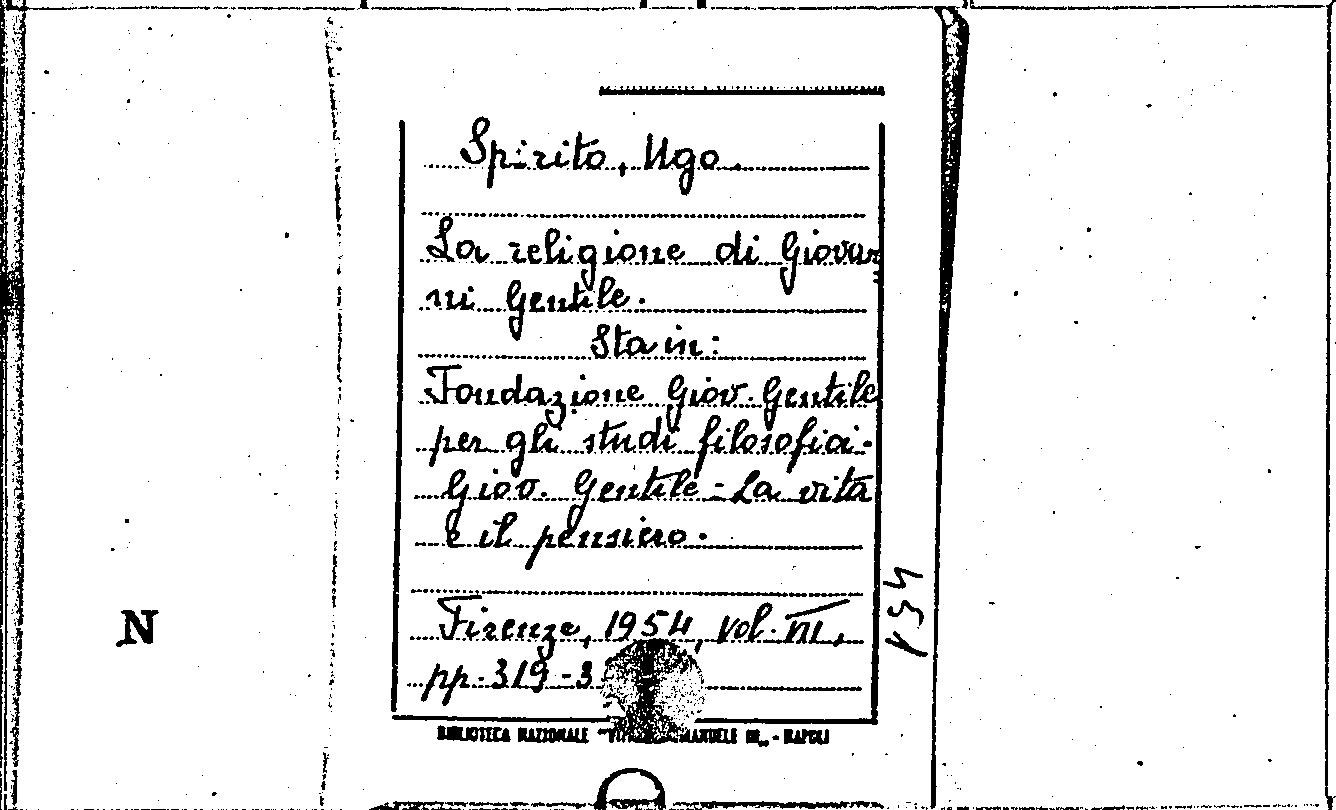 Spirito, Ugo.
La religione di Giovan
ni Gentile.
Sta in:
Fondazione Giov. Gentile
per gli studi filosofici-
Giov. Gentile - La vita
e il pensiero.
Firenze, 1954, vol. VII,
pp. 319-3
BIBLIOTECA NAZIONALE - NAPOLI
N